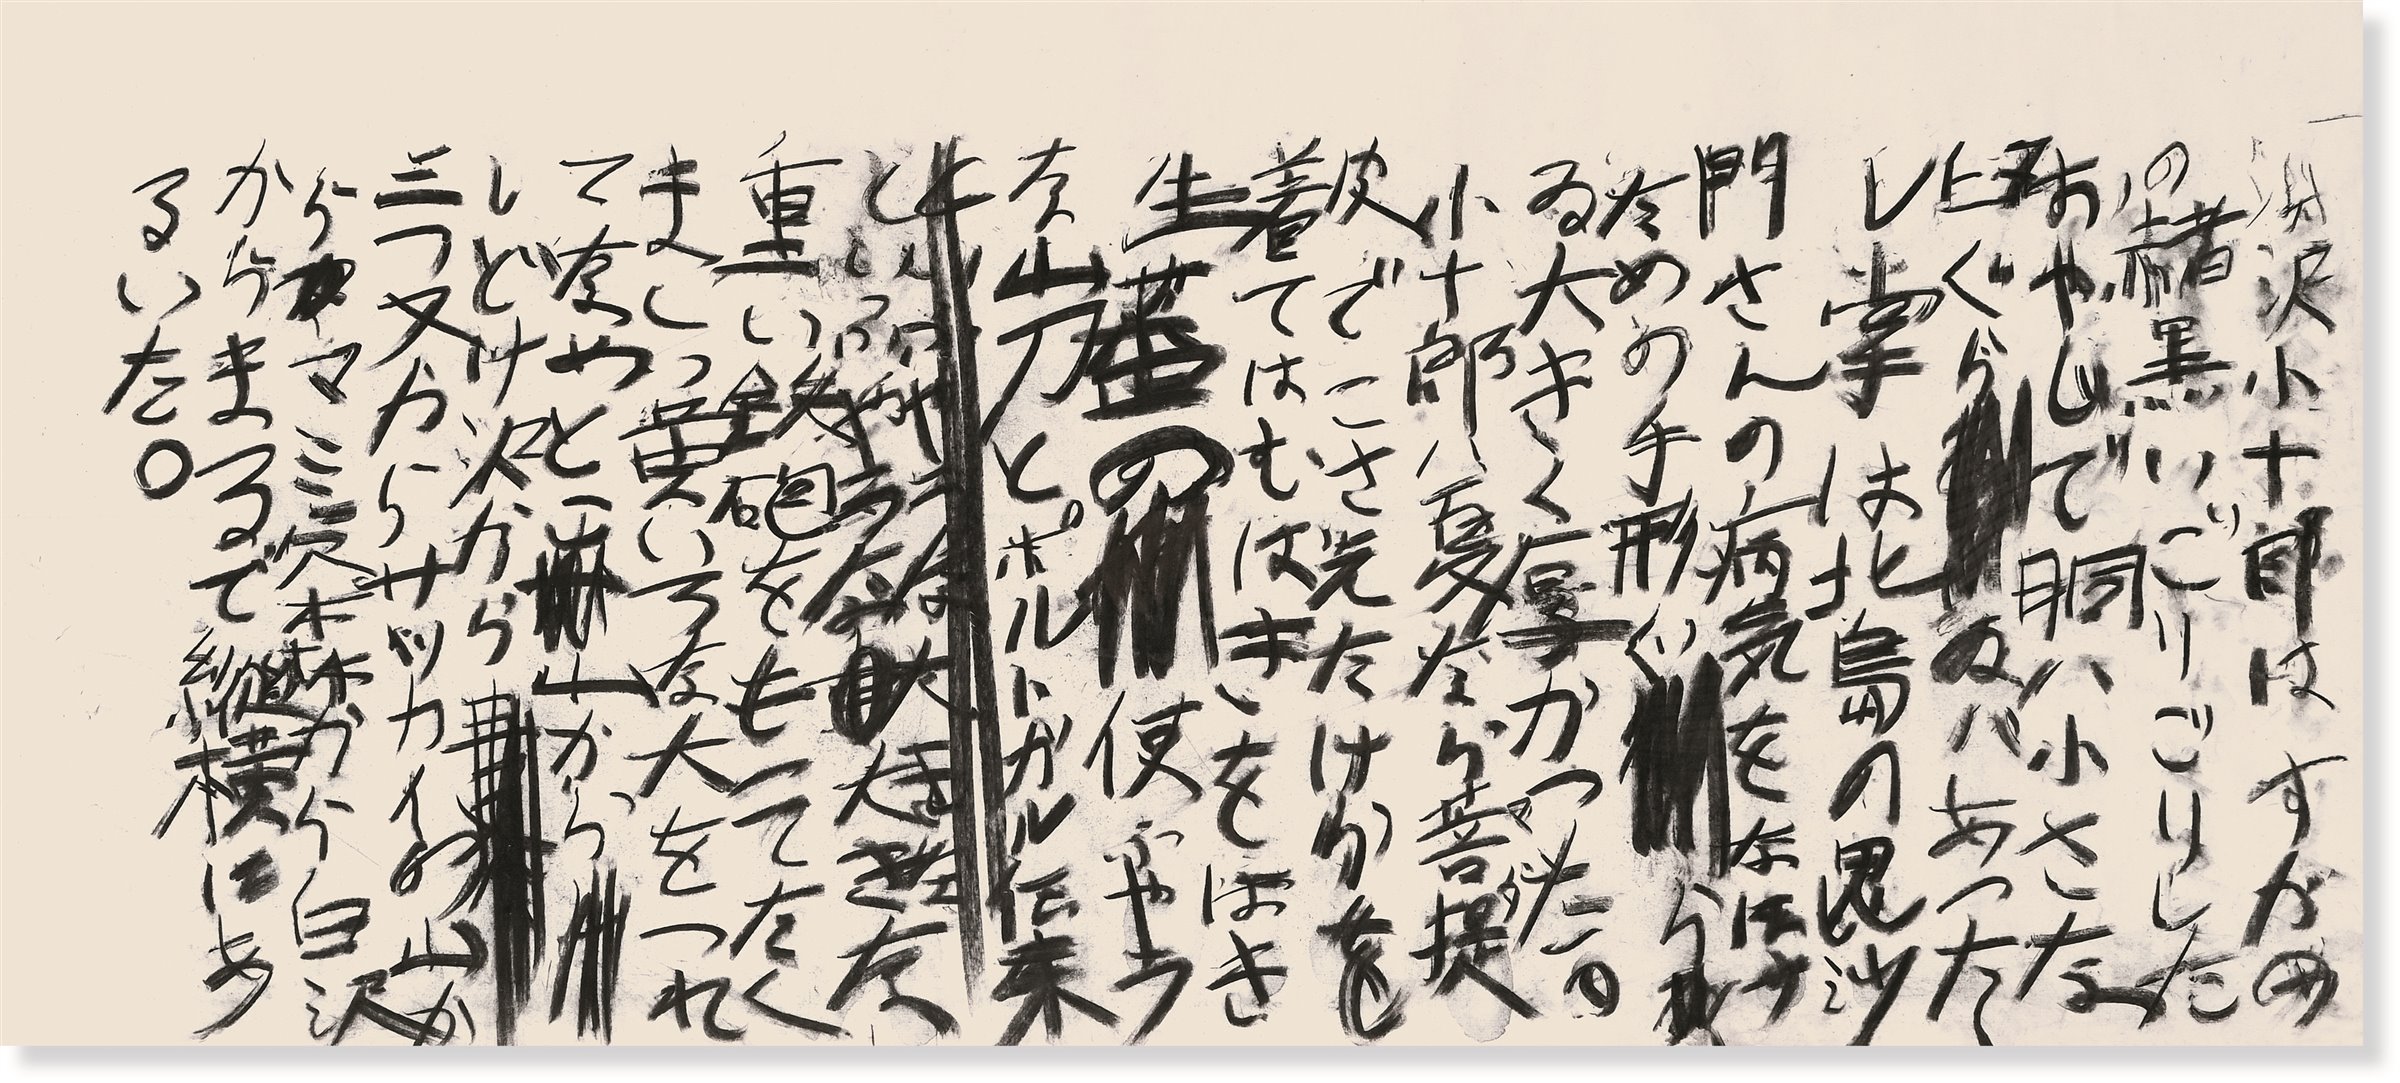 淵沢小十郎はすがめ
の赭黒いごりごりした
おやじで胴ハ小さな
臼ぐらゐハあった
し掌は北島の毘沙
門さんの病気をなほす
ための手形ぐら
ゐ大きく厚かつた
小十郎ハ夏なら菩提
皮でこさえたけらを
着てはむばきをはき
生蕃の使ふやう
な山刀とポルトガル伝来
といふやうな大きな
重い鉄砲をもってたく
ましい黄いろな犬をつれ
てなめとこ山から
しどけ沢から
三つ又からサッカイの山か
らマミ穴森から白沢
からまるで縦横にあ
るいた。